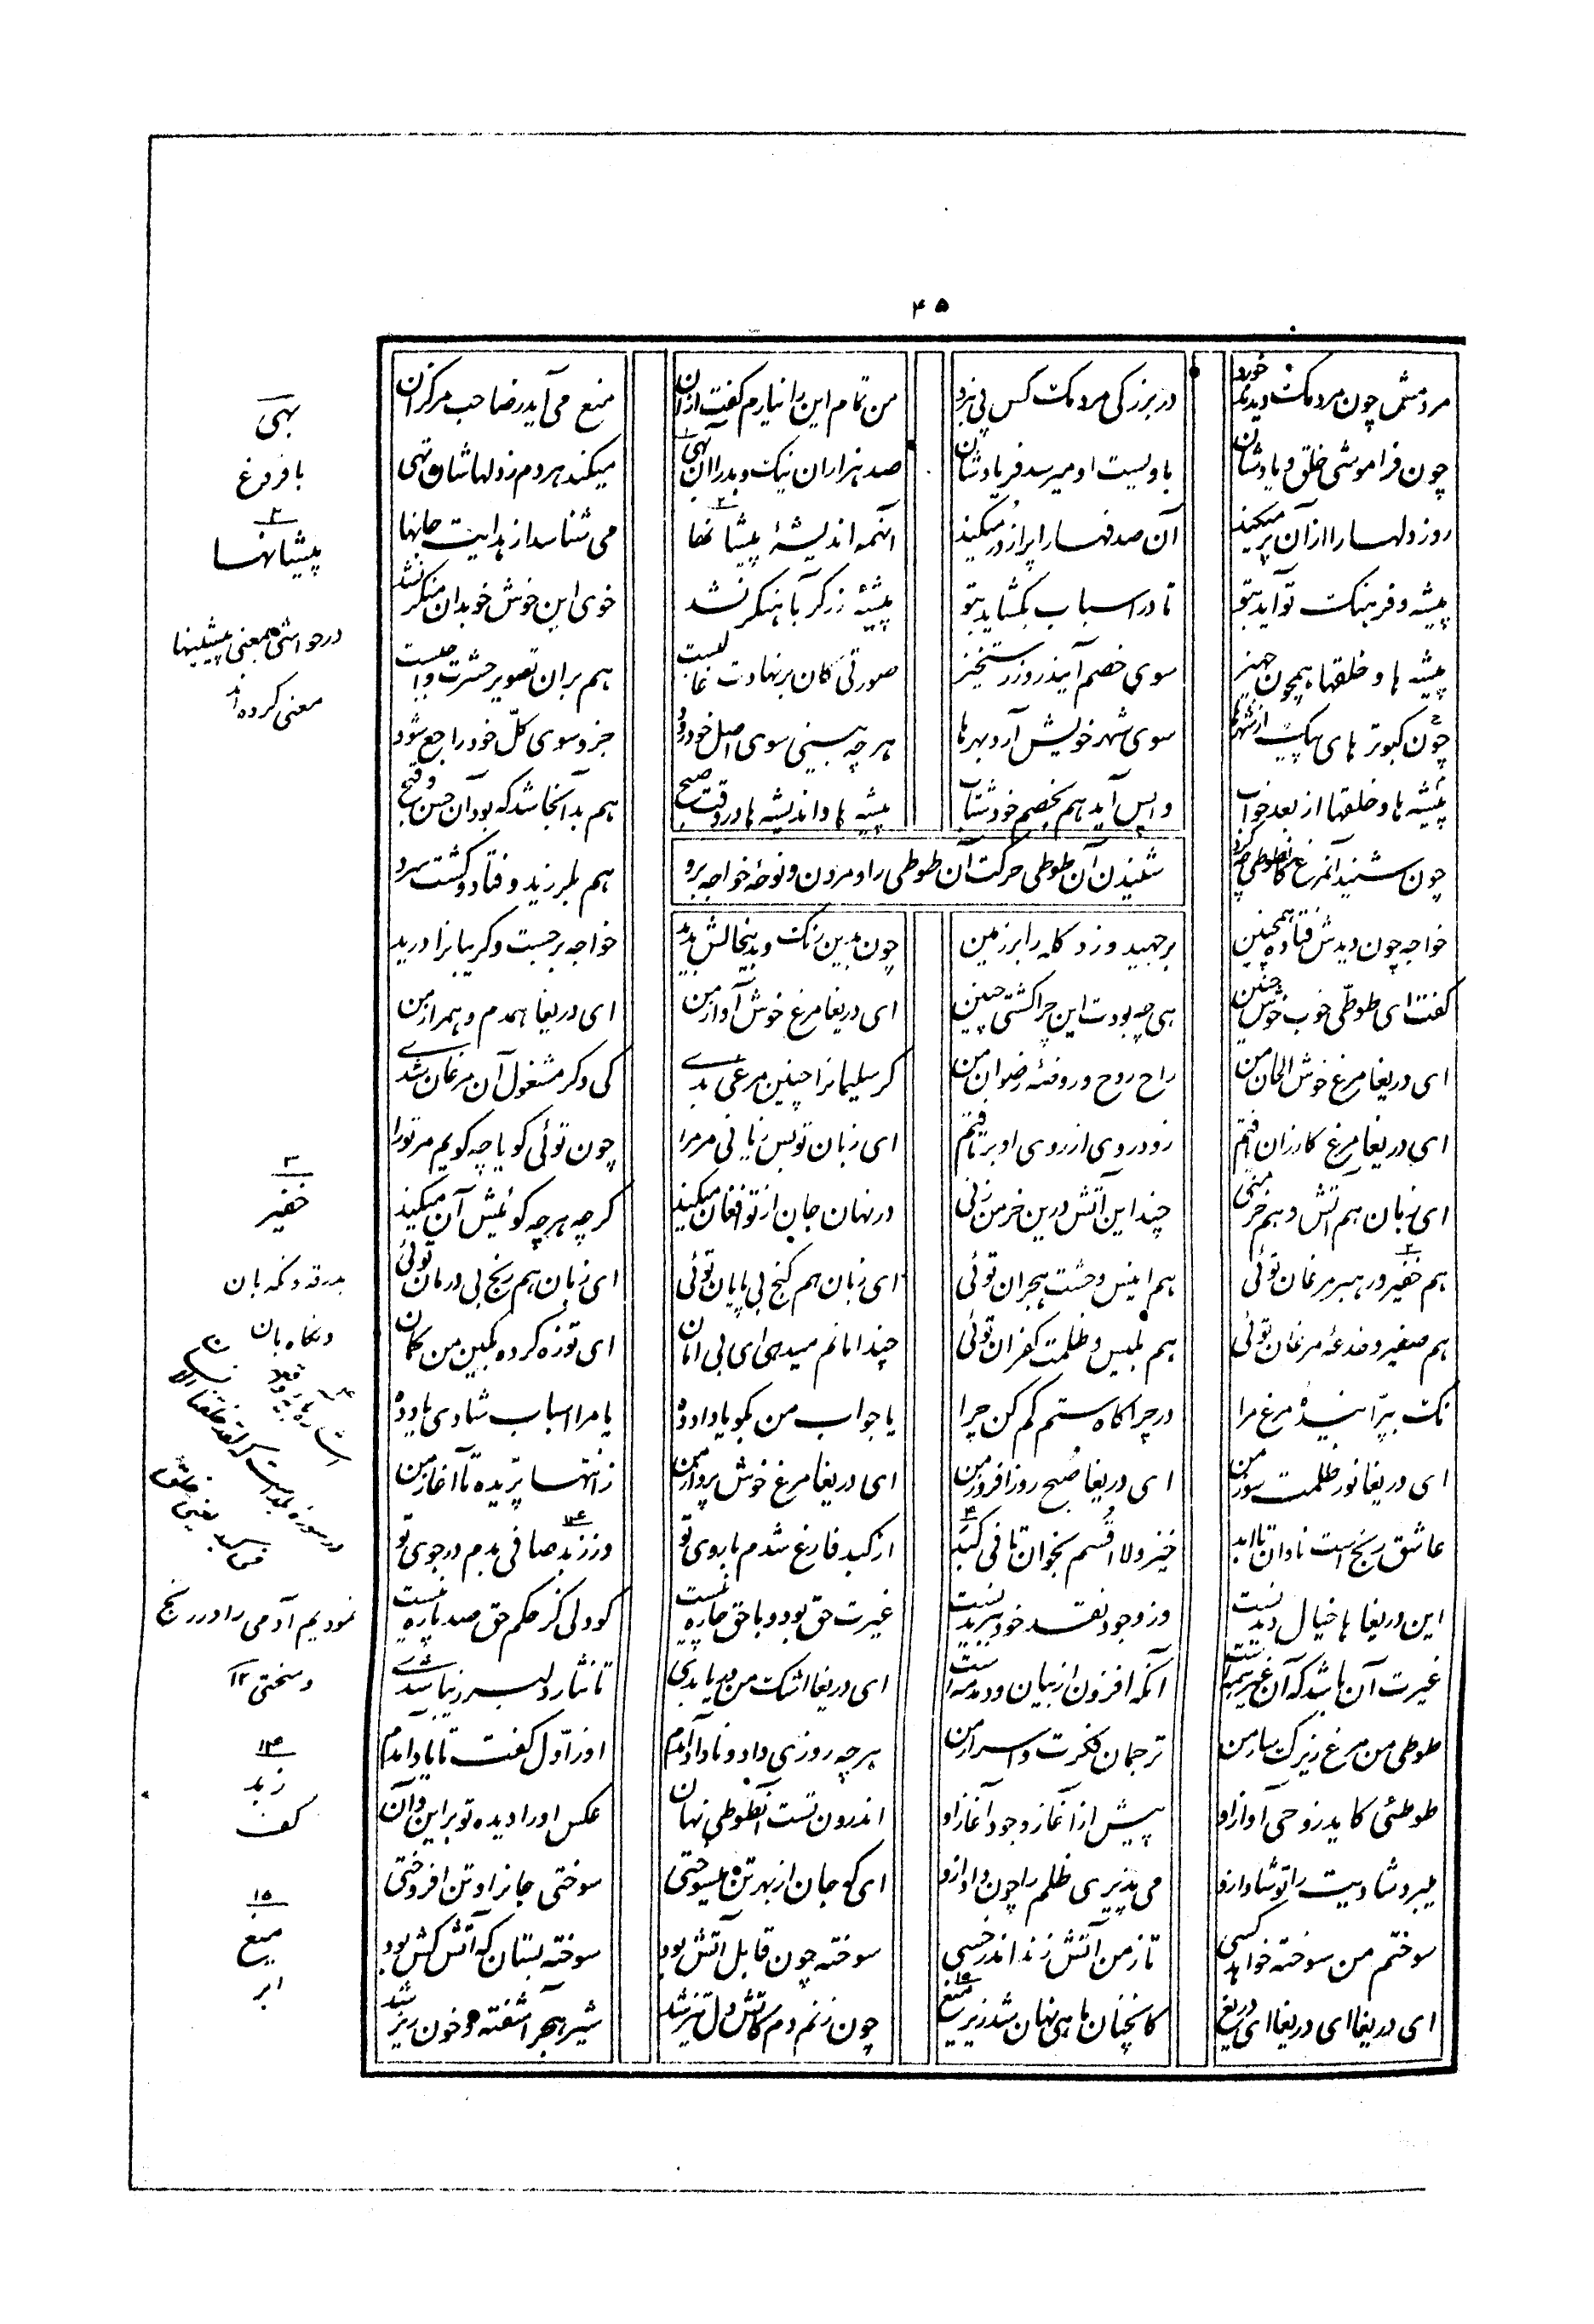 ۴۵
مردمش چون مردمک دیدند خورد در بزرگی مردمک کس پی نبرد من تمام این را نیارم گفت ازان منع می آید ز صاحب مرکزان
چون فراموشی خلق و یادشان با ویست او میرسد فریادشان صد هزاران نیک و بد را آن بهی میکند هر دم ز دلهاشان تهی
روز دلها را از آن پر میکند آن صدفها را پر از در میکند آنهمه اندیشهٔ پیشانها می شناسد از هدایت جانها
پیشه و فرهنگ تو آید بتو تا در اسباب بگشاید بتو پیشهٔ زرگر بآهنگر نشد خوی این خوش خو بدان منکر نشد
پیشه ها و خلقها همچون جهیز سوی خصم آیند روز رستخیز صورتی کان بر نهادت غالبست هم بران تصویر حشرت واجبست
چون کبوترهای پیک از شهرها سوی شهر خویش آرد بهرها هر چه بینی سوی اصل خود رود جزو سوی کلّ خود راجع شود
پیشه ها و خلقها از بعد خواب واپس آید هم بخصم خود شتاب پیشه ها و اندیشه ها در وقت صبح هم بدآنجا شد که بود آن حسن و قبح
شنیدن آن طوطی حرکت آن طوطی را و مردن و نوحهٔ خواجه برو
چون شنید آنمرغ کان طوطی چه کرد هم بلرزید و فتاد و گشت سرد
خواجه چون دیدش فتاده همچنین بر جهید و زد کله را بر زمین چون بدین رنگ و بدینحالش بدید خواجه بر جست و گریبانرا درید
گفت ای طوطی خوب خوش حنین هی چه بودت این چرا گشتی چنین ای دریغا مرغ خوش آواز من ای دریغا همدم و همراز من
ای دریغا مرغ خوش الحان من راح روح و روضهٔ رضوان من گر سلیمانرا چنین مرغی بدی کی دگر مشغول آن مرغان شدی
ای دریغا مرغ کارزان یافتم زود روی از روی او بر تافتم ای زبان تو بس زیانی مر مرا چون توئی گویا چه گویم مر تورا
ای زبان هم آتش و هم خرمنی چند این آتش درین خرمن زنی در نهان جان از تو افغان میکند گرچه هر چه گوئیش آن میکند
هم خفیر و رهبر مرغان توئی هم انیس وحشت هجران توئی ای زبان هم گنج بی پایان توئی ای زبان هم رنج بی درمان توئی
هم صفیر و خدعهٔ مرغان توئی هم بلیس و ظلمت کفران توئی چند امانم میدهی ای بی امان ای تو زه کرده بکین من کمان
نک بپرانیدهٔ مرغ مرا در چراگاه ستم کم کن چرا یا جواب من بگو یا داد ده یا مرا اسباب شادی یاد ده
ای دریغا نور ظلمت سوز من ای دریغا صبح روز افروز من ای دریغا مرغ خوش پرواز من ز انتها پرّیده تا آغاز من
عاشق رنج است نادان تا ابد خیز و لا اقسم بخوان تا فی کبد از کبد فارغ شدم با روی تو وز زبد صافی بدم در جوی تو
این دریغاها خیال دیدنست وز وجود نقد خود ببریدنست غیرت حق بود و با حق چاره نیست کو دلی کز حکم حق صد پاره نیست
غیرت آن باشد که آن غیر همه است آنکه افزون از بیان و دمدمه است ای دریغا اشک من دریا بدی تا نثار دلبر زیبا شدی
طوطی من مرغ زیرک سار من ترجمان فکرت و اسرار من هر چه روزی داد و ناداد آدم او ز اول گفت تا یاد آیدم
طوطئی کاید ز وحی آواز او پیش از آغاز وجود آغاز او اندرون تست آن طوطی نهان عکس اورا دیده تو بر این و آن
میبرد شادیت را تو شاد ازو می پذیری ظلم را چون داد ازو ای که جان از بهر تن میسوختی سوختی جانرا و تن افروختی
سوختم من سوخته خواهد کسی تا ز من آتش زند اندر خسی سوخته چون قابل آتش بود سوخته بستان که آتش کش بود
ای دریغا ای دریغا ای دریغ کانچنان ماهی نهان شد زیر میغ چون زنم دم کاتش دل تیز شد شیر هجر آشفته و خون ریز شد
بهی
با فروغ
۲
پیشانها
در حواشی بمعنی پیشینها
معنی کرده اند
۳
خفیر
بدرقه و نگه بان
و نگاه بان
نمودیم آدمی را در رنج
و سختی ۱۲
۱۴
زبد
کف
۱۵
میغ
ابر